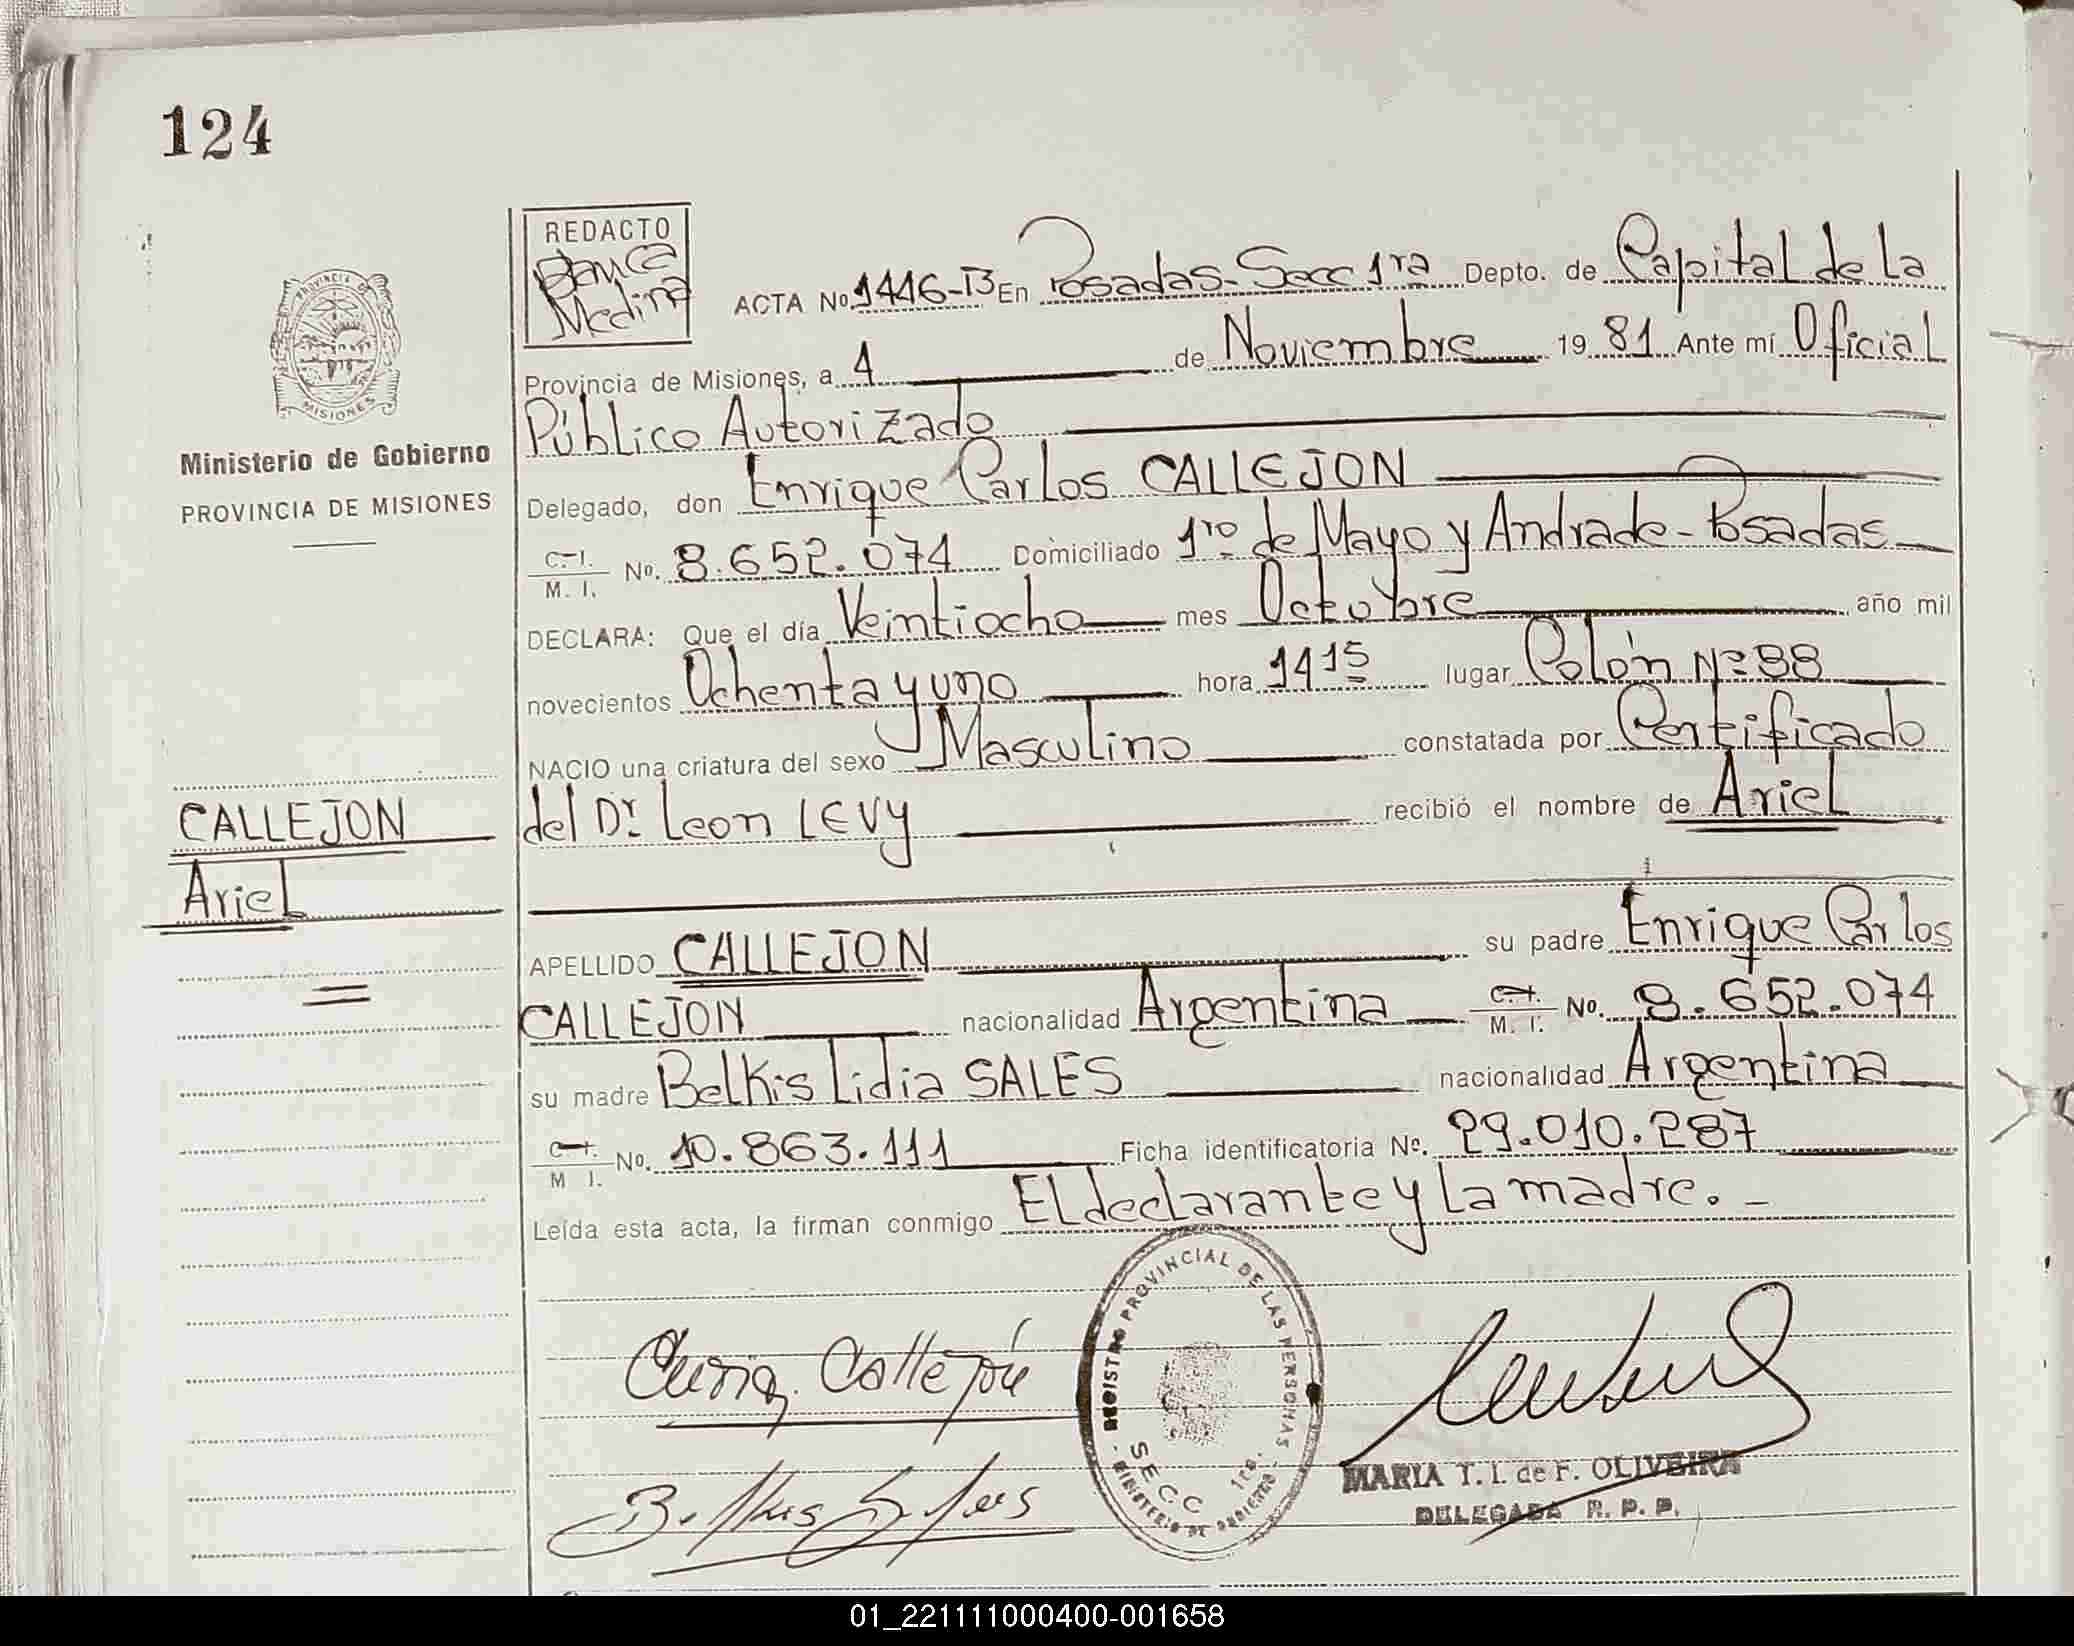 124
REDACTO
Blanca
Medina
ACTA No. 1446-B En Posadas-Secc 1ra Depto. de Capital de La
Provincia de Misiones, a 4 de Noviembre 19 81 Ante mí Oficial
Público Autorizado
Delegado, don Enrique Carlos CALLEJON
C. I.
M. I. No. 8.652.074 Domiciliado 1ro de Mayo y Andrade-Posadas
DECLARA: Que el día Veintiocho mes Octubre año mil
novecientos Ochenta y uno hora 14 15 lugar Colón Nº 88
NACIO una criatura del sexo Masculino constatada por Certificado
del Dr. Leon LEVY recibió el nombre de Ariel
APELLIDO CALLEJON su padre Enrique Carlos
CALLEJON nacionalidad Argentina C. I. M. I. No. 8.652.074
su madre Belkis Lidia SALES nacionalidad Argentina
C. I. M I. No. 10.863.111 Ficha identificatoria No. 29.010.287
Leída esta acta, la firman conmigo El declarante y La madre.-
PROVINCIA DE
MISIONES
Ministerio de Gobierno
PROVINCIA DE MISIONES
CALLEJON
Ariel
REGISTRO PROVINCIAL DE LAS PERSONAS
SECC 1ra.
MINISTERIO DE GOBIERNO
MARIA T. I. de F. OLIVEIRA
DELEGADA R. P. P.
01_221111000400-001658